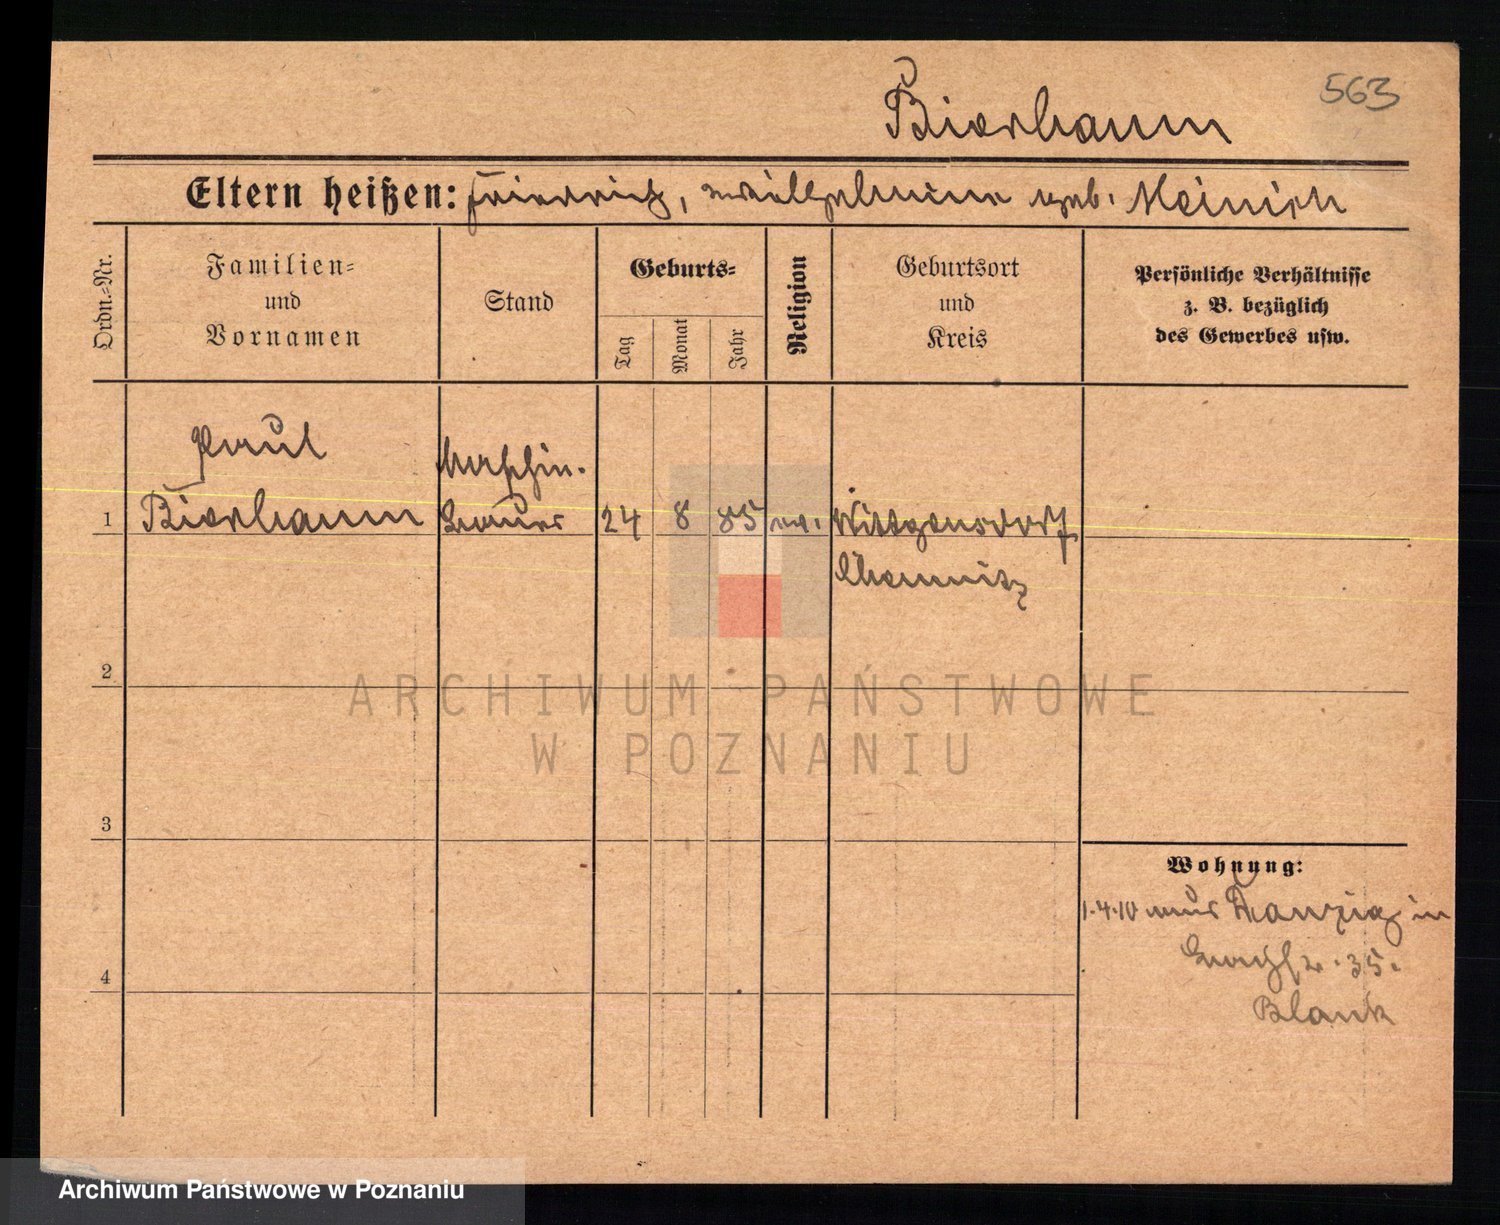 563
Bierbaum
Eltern heißen: Friedrich, Wilhelmine geb. Meinich
Ordn.=Nr.
Familien=
und
Vornamen
Stand
Geburts=
Tag
Monat
Jahr
Religion
Geburtsort
und
Kreis
Persönliche Verhältnisse
z. B. bezüglich
des Gewerbes usw.
Paul
Maschin.
1 Bierbaum 24 8 85 ev. Wittgensdorf
Chemnitz
2
3
4
Wohnung:
1.4.10 aus Danzig in
35.
Blank
ARCHIWUM PAŃSTWOWE
W POZNANIU
Archiwum Państwowe w Poznaniu